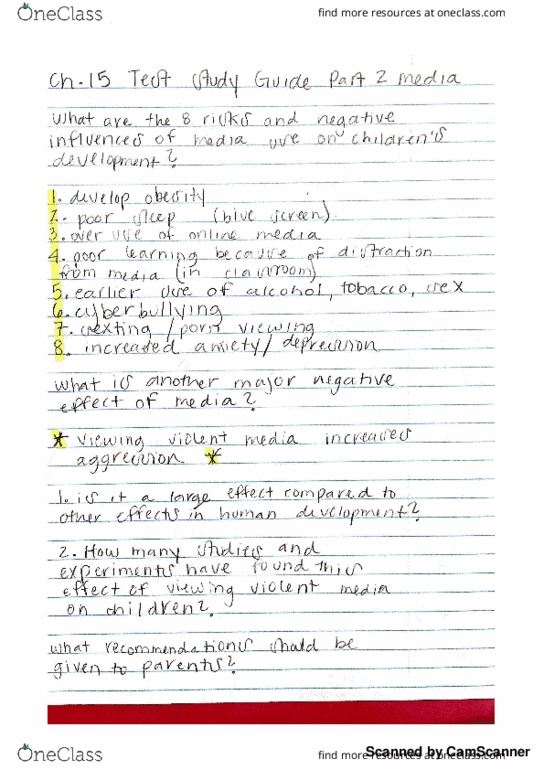 OneClass
find more resources at oneclass.com
Ch. 15 Test Study Guide Part 2 media
What are the 8 risks and negative
influences of media use on children's
development?
1. develop obesity
2. poor sleep (blue screen)
3. over use of online media
4. poor learning because of distraction
from media (in classroom)
5. earlier use of alcohol, tobacco, sex
6. cyberbullying
7. sexting / porn viewing
8. increased anxiety / depression
what is another major negative
effect of media?
* viewing violent media increases
aggression *
1. is it a large effect compared to
other effects in human development?
2. How many studies and
experiments have found this
effect of viewing violent media
on children?
what recommendations should be
given to parents?
OneClass
find more resources at oneclass.com
Scanned by CamScanner